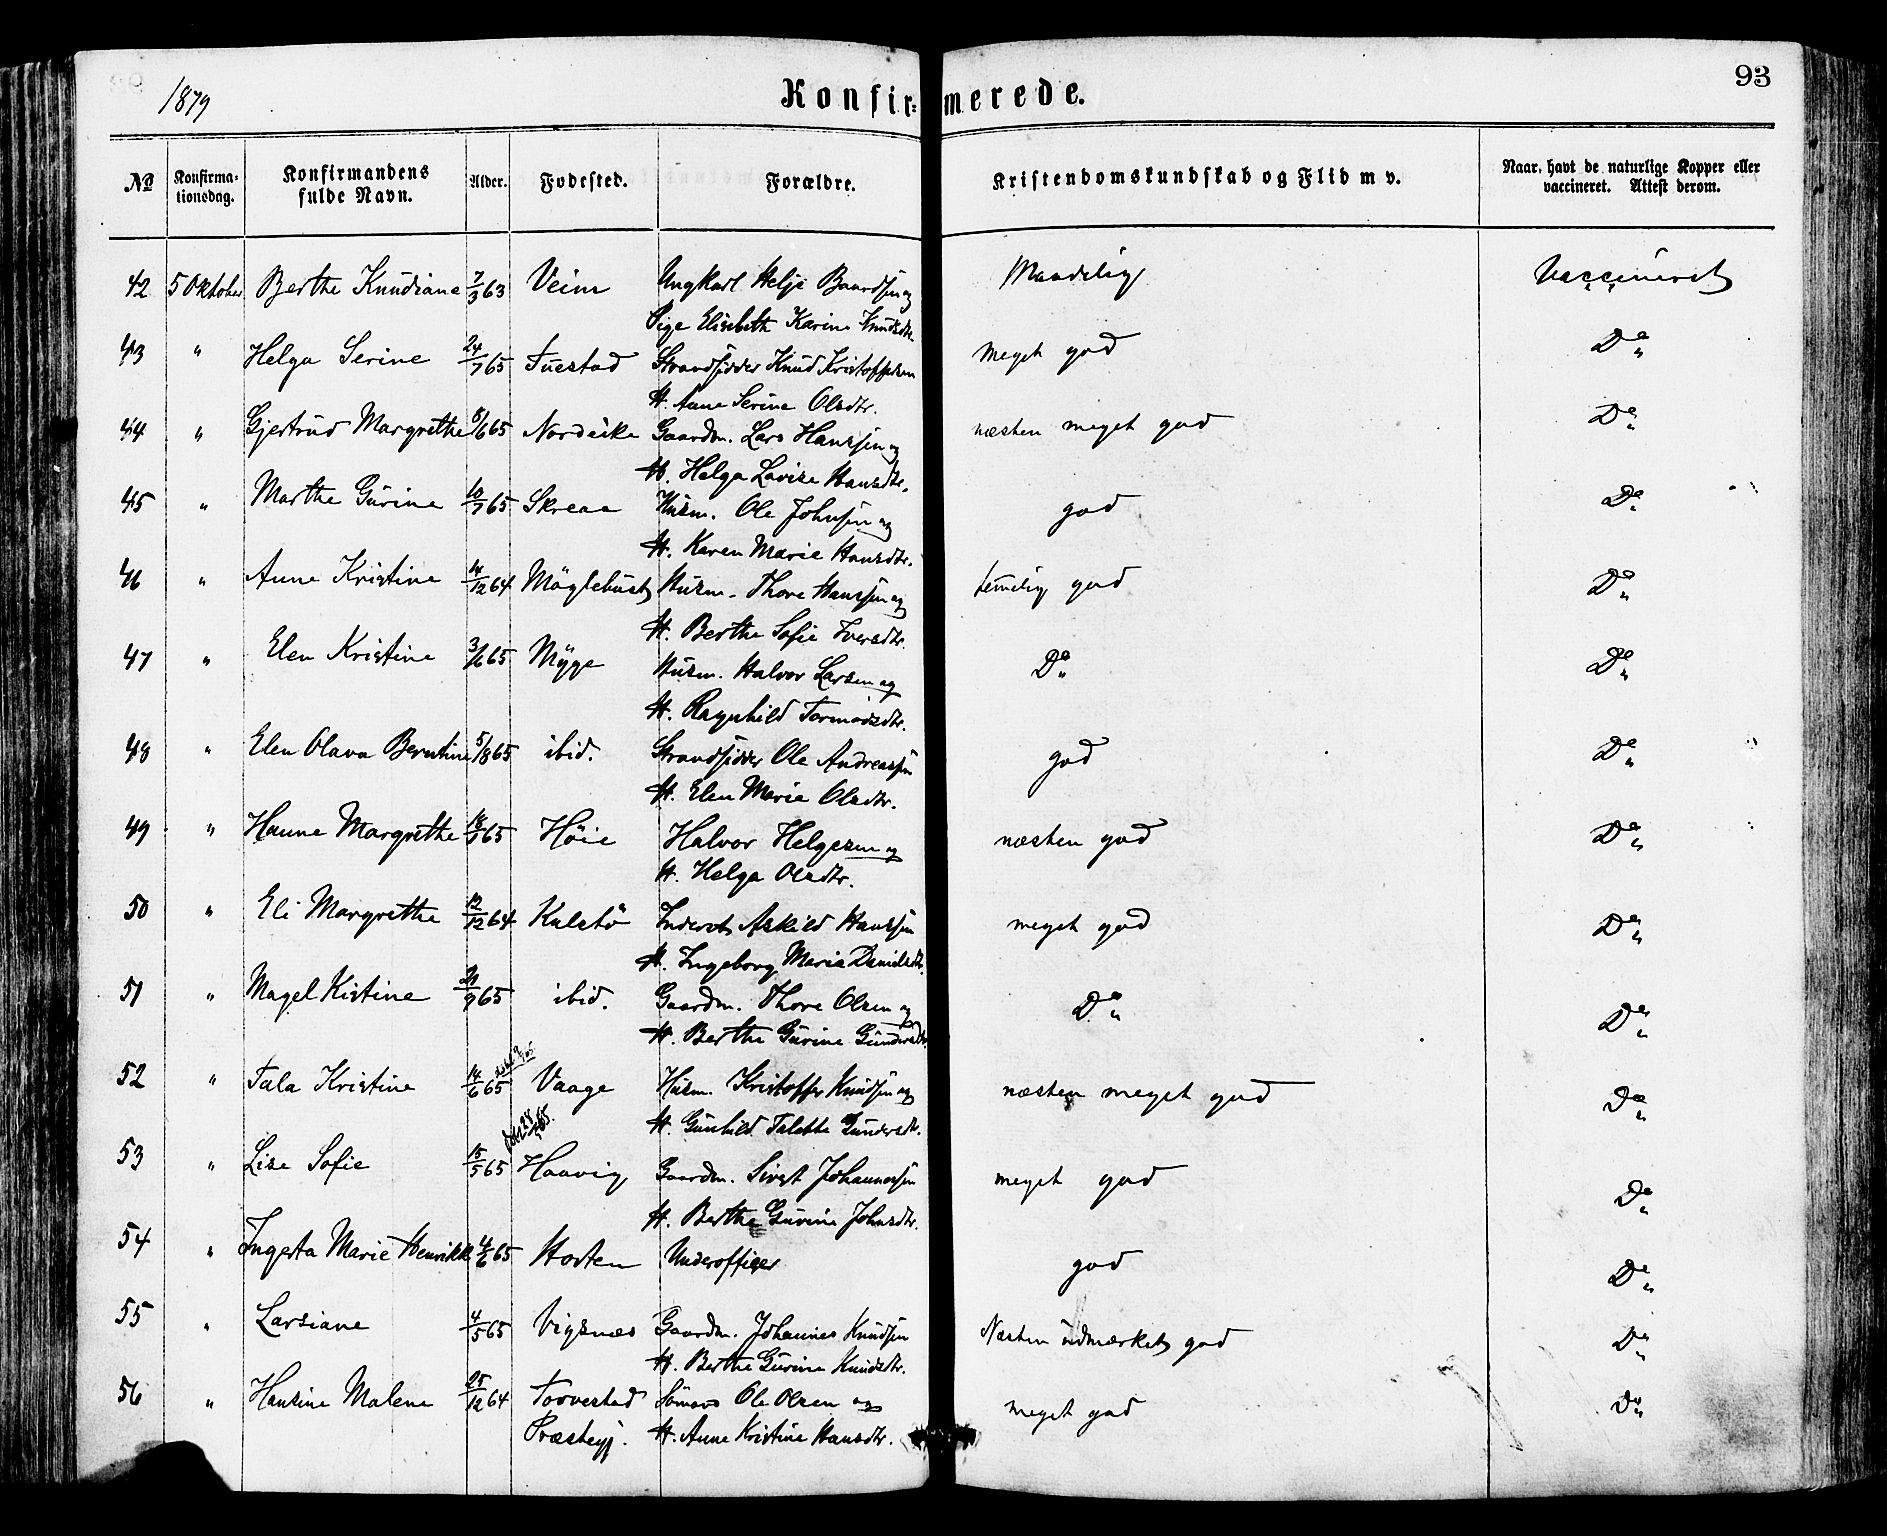 1879 Konfirmerede. 93
№ Konfirmationsdag. Konfirmandens fulde Navn. Alder. Fodested. Forældre. Kristendomskundskab og Flid m v. Naar havt de naturlige Kopper eller vaccineret. Attest derom.
42 5 Oktober Berthe Knudiane 7/3 63 Veim Ungkarl Helje Baardsen og Maadelig Vaccineret
Pige Elisebeth Karine Knudsdtr.
43 " Helga Serine 24/7 65 Fuestad Strandsidder Knud Kristoffersen meget god Do "
H. Anne Serine Olsdtr.
44 " Gjertrud Margrethe 8/6 65 Nordvike Gaardm. Lars Hanssen og næsten meget god Do "
H. Helga Lovise Hansdtr.
45 " Marthe Gurine 10/7 65 Skreaa Husm. Ole Johnsen og god Do "
H. Karen Marie Hansdtr.
46 " Anne Kristine 14/12 64 Möglebust Husm. Thore Hanssen og temelig god Do "
H. Berthe Sofie Iversdtr.
47 " Elen Kristine 3/6 65 Myge Husm. Halvor Larsen og Do " Do "
H. Ragnhild Tormodsdtr.
48 " Elen Olava Berntine 5/8 65 ibid. Strandsidder Ole Andreassen god Do "
H. Elen Marie Olsdtr.
49 " Hanne Margrethe 18/9 65 Höie Halvor Helgesen og næsten god Do "
H. Helga Olsdtr.
50 " Eli Margrethe 12/12 64 Kalstö Inderst Askild Hanssen meget god Do "
H. Ingeborg Marie Danielsdtr.
51 " Magel Kistine 21/9 65 ibid. Gaardm. Thore Olsen og Do " Do "
H. Berthe Gurine Gundersdtr.
52 " Tala Kristine 14/6 65 Vaage Husm. Kristoffer Knudsen og næsten meget god Do "
H. Gunhild Talette Gundersdtr.
53 " Lise Sofie 15/5 65 Haavig Gaardm. Sivert Johannessen meget god Do "
H. Berthe Gurine Johnsdtr.
54 " Ingesta Marie Henrikke 4/6 65 Horten Underofficer god Do "
55 " Larsiane 4/5 65 Vigsnes Gaardm. Johannes Knudsen Næsten udmærket god Do "
H. Berthe Gurine Knudsdtr.
56 " Hansine Malene 25/12 64 Torvestad Sömand Ole Olsen og meget god Do "
Præstegj. H. Anne Kristine Hansdtr.